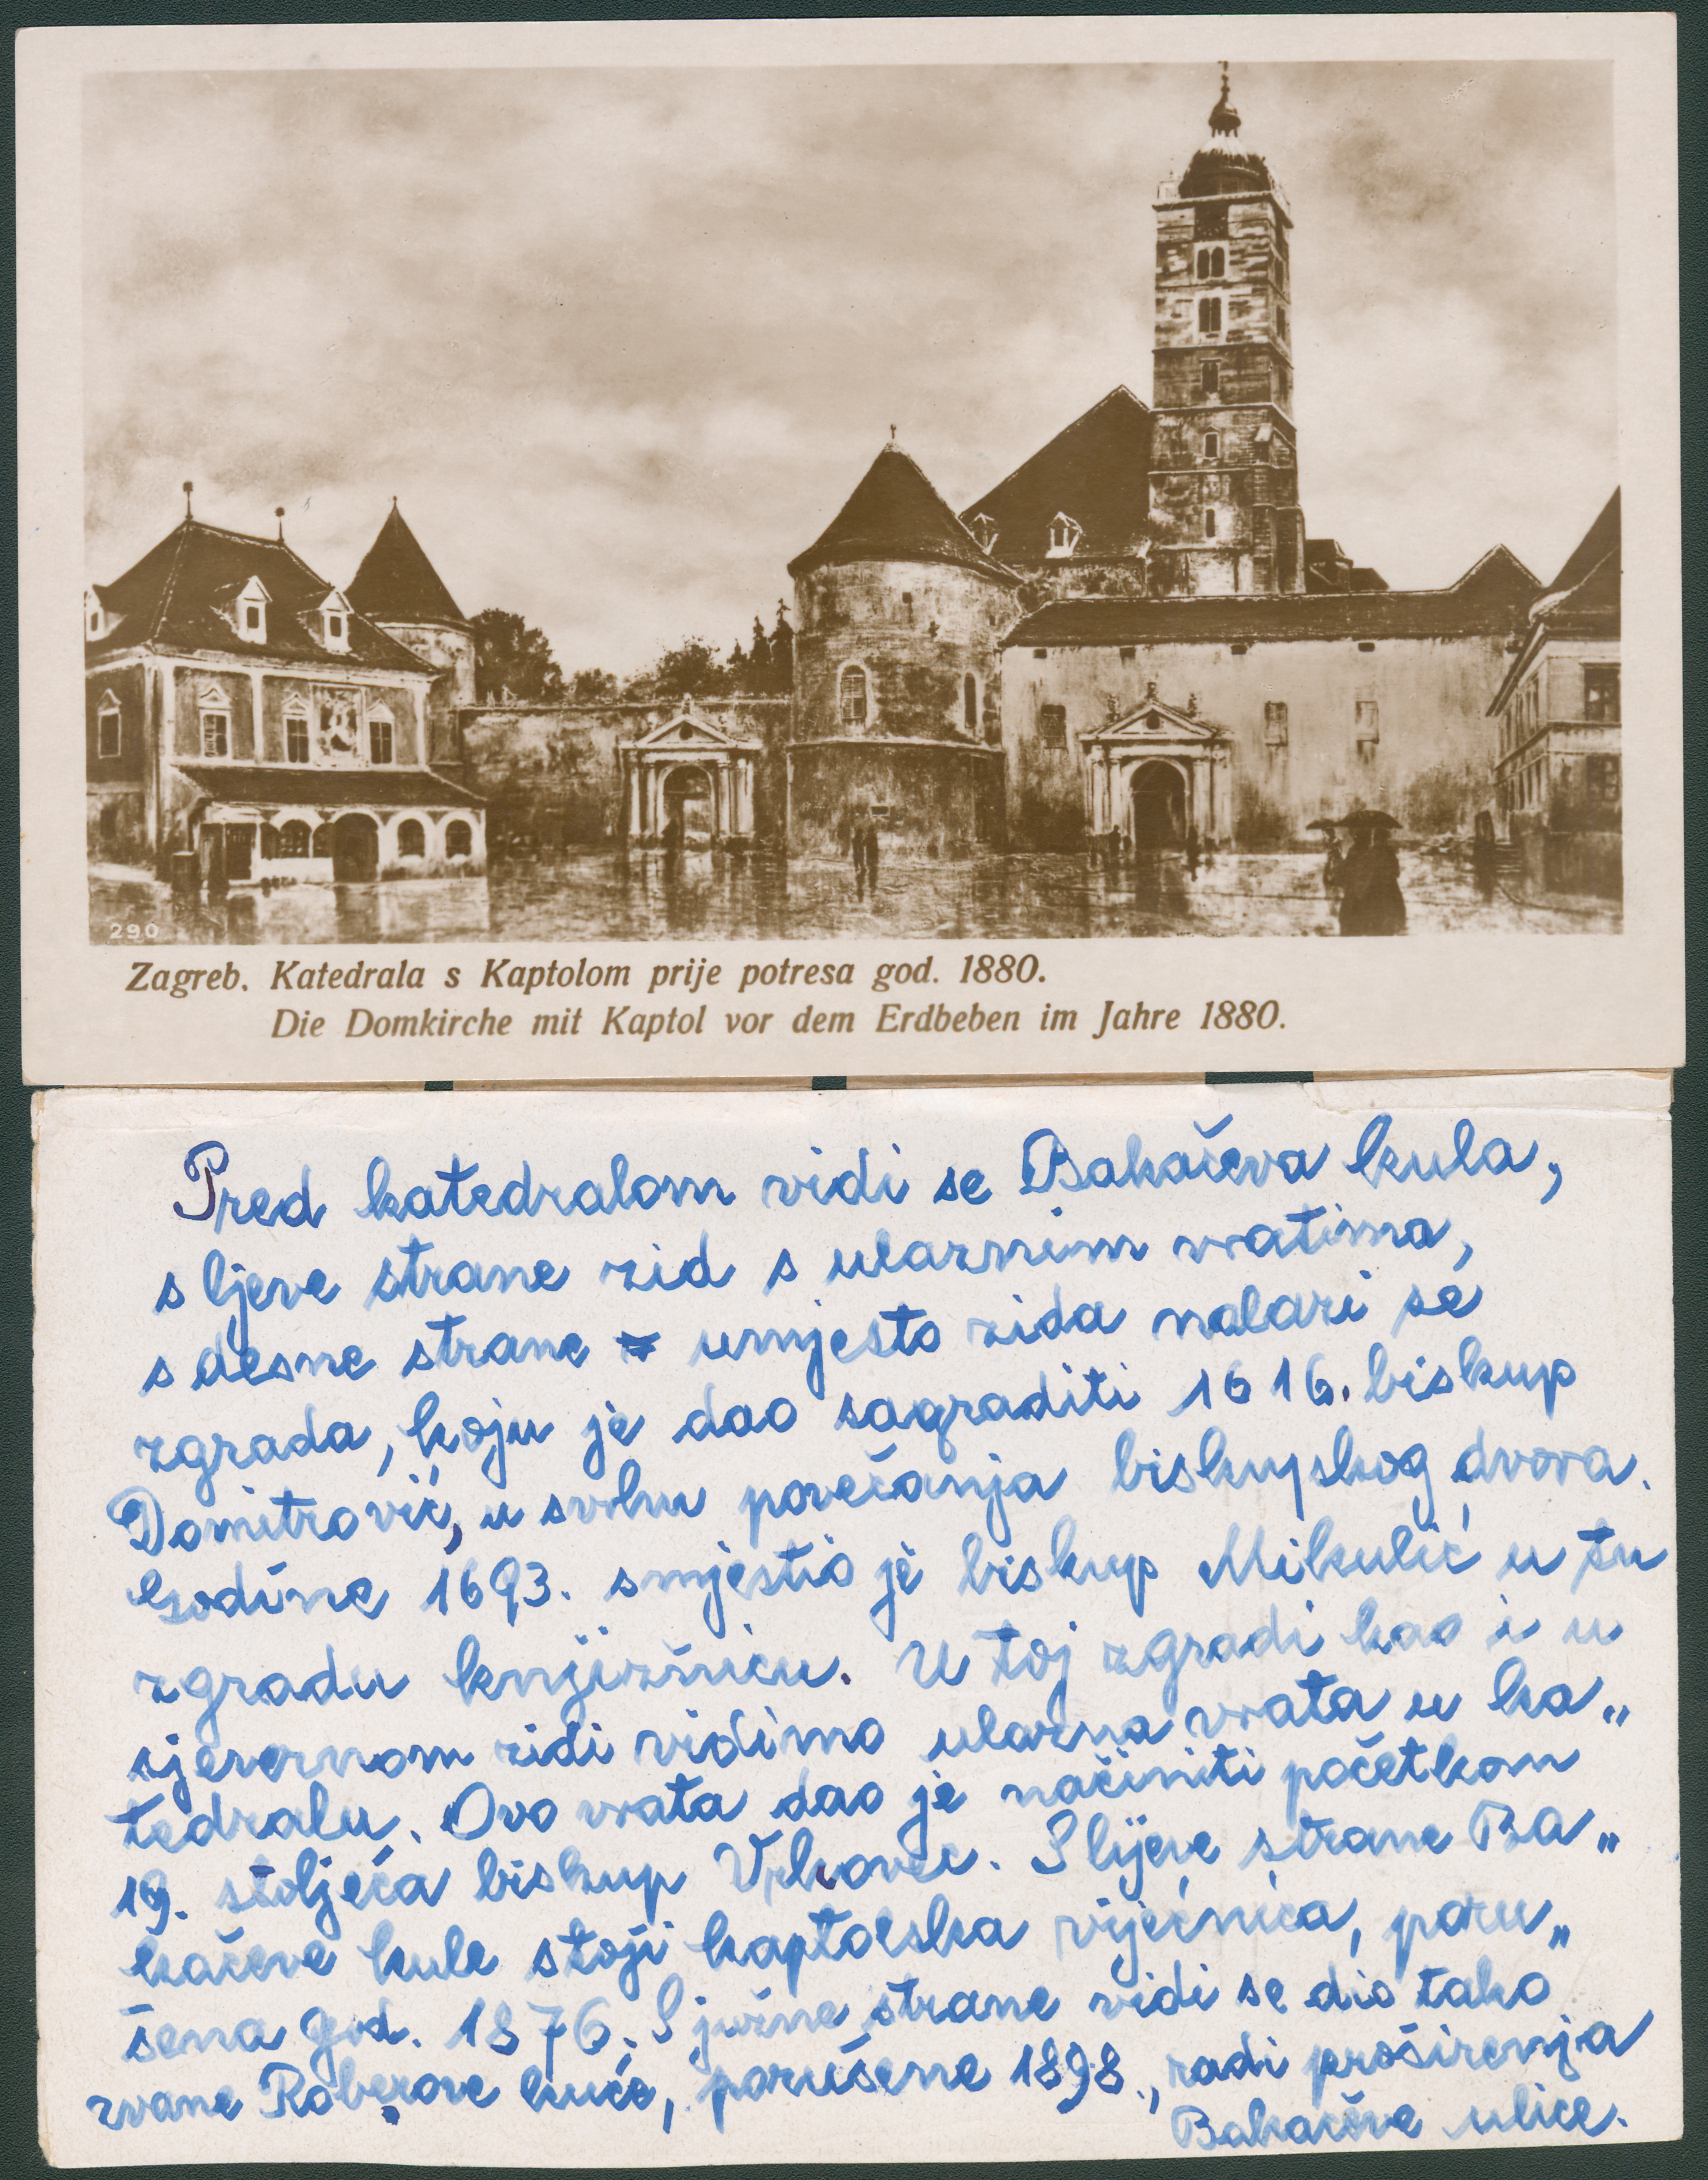 290
Zagreb. Katedrala s Kaptolom prije potresa god. 1880.
Die Domkirche mit Kaptol vor dem Erdbeben im Jahre 1880.
Pred katedralom vidi se Bakačeva kula,
s ljeve strane zid s ulaznim vratima,
s desne strane umjesto zida nalazi se
zgrada, koju je dao sagraditi 1616. biskup
Domitrović, u svrhu povečanja biskupskog dvora.
Godine 1693. smjestio je biskup Mikulić u tu
zgradu knjižnicu. U toj zgradi kao i u
sjevernom zidi vidimo ulazna vrata u ka„
tedralu. Ovo vrata dao je načiniti početkom
19. stoljeća biskup Vrhovec. S lijeve strane Ba„
kačeve kule stoji kaptolska vijećnica, poru„
šena god. 1876. S južne strane vidi se dio tako
zvane Roberove kuće, porušene 1898., radi proširenja
Bakačeve ulice.